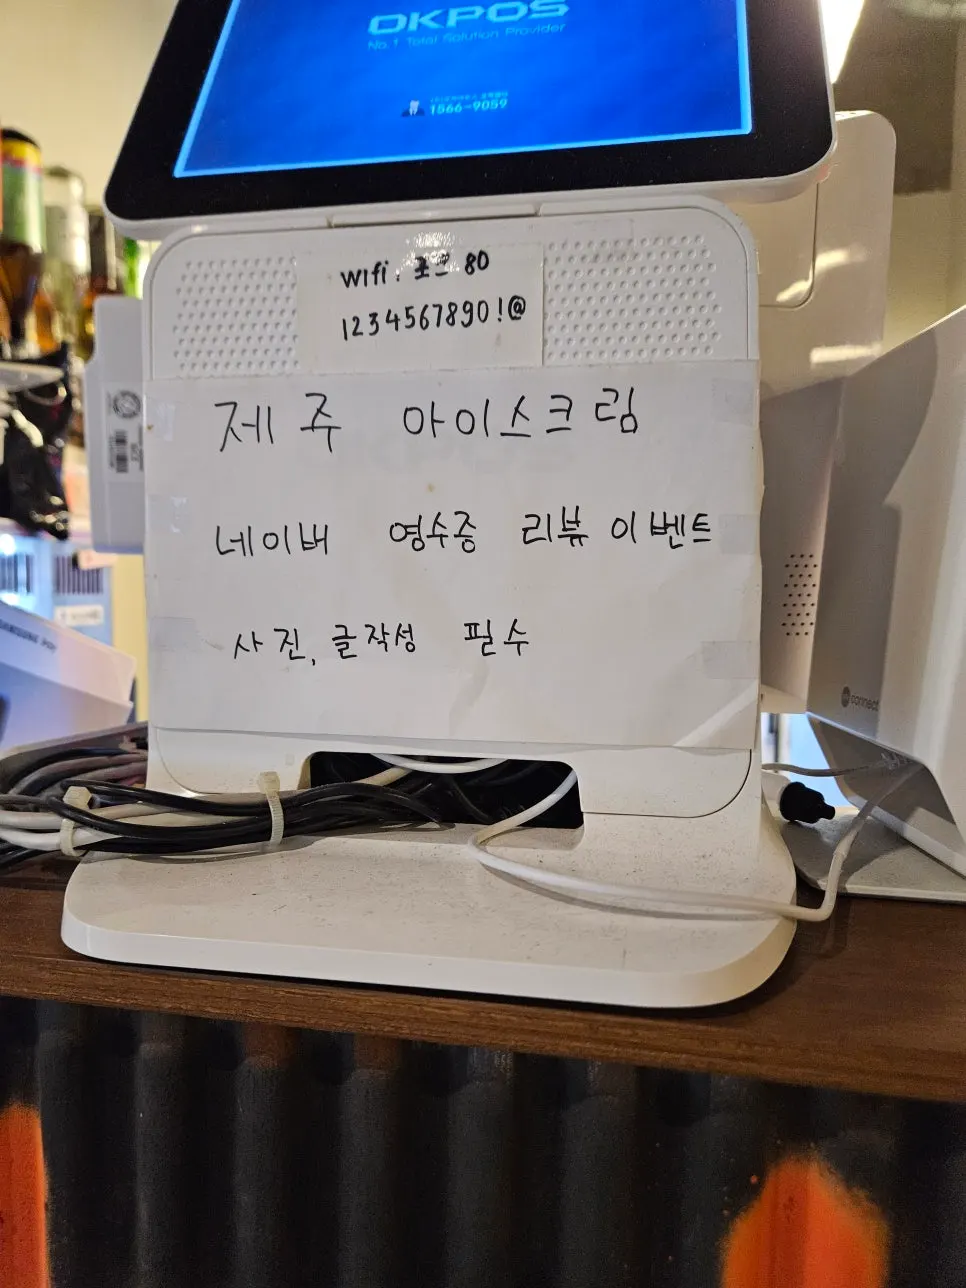 OKPOS
No.1 Total Solution Provider
1566-9059
wifi : 포크 80
1234567890!@
제주 아이스크림
네이버 영수증 리뷰 이벤트
사진, 글작성 필수
SAMSUNG
connect